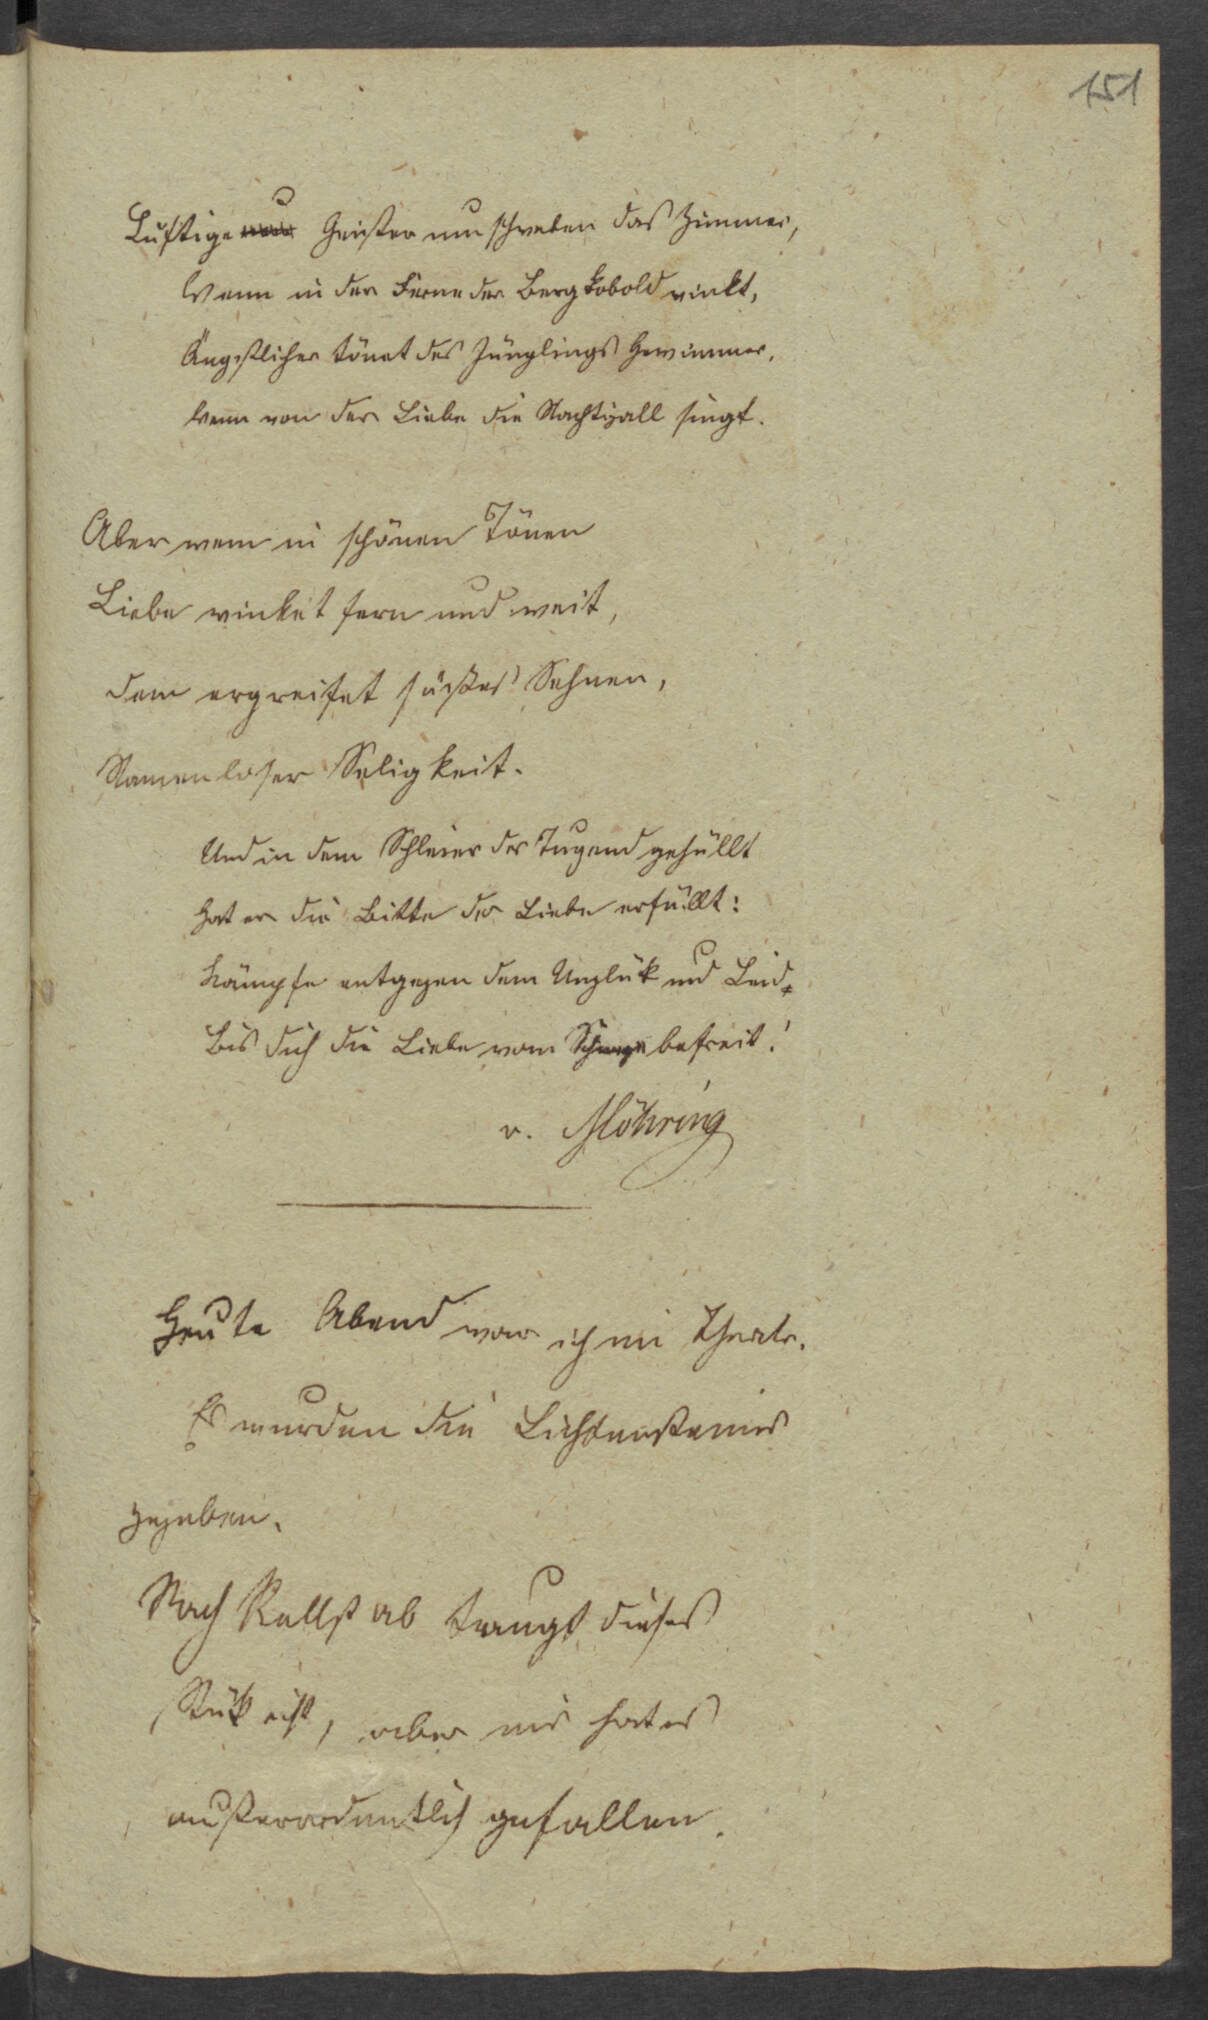 151
Luftige Geister umschweben das Zimmer,
Wenn in der Ferne der Bergkobold winkt,
Ängstlicher tönet des Jünglings Gewimmer,
Wenn von der Liebe die Nachtigall singt.
Aber wem in schönen Tönen
Liebe winket fern und weit,
dem ergreifet süßes Sehnen,
Namenloser Seligkeit.
Und in dem Schleier der Tugend gehüllt
Hat er die Bitte der Liebe erfüllt:
Kämpfe entgegen dem Unglük und Leid,
Bis dich die Liebe vom befreit!
v. Möhring
Heute Abend war ich im Theater.
Es wurden die Lichtensteiner
gegeben.
Nach Rellstab taugt dieses
Stük nicht, aber mir hat es
außerordentlich gefallen.